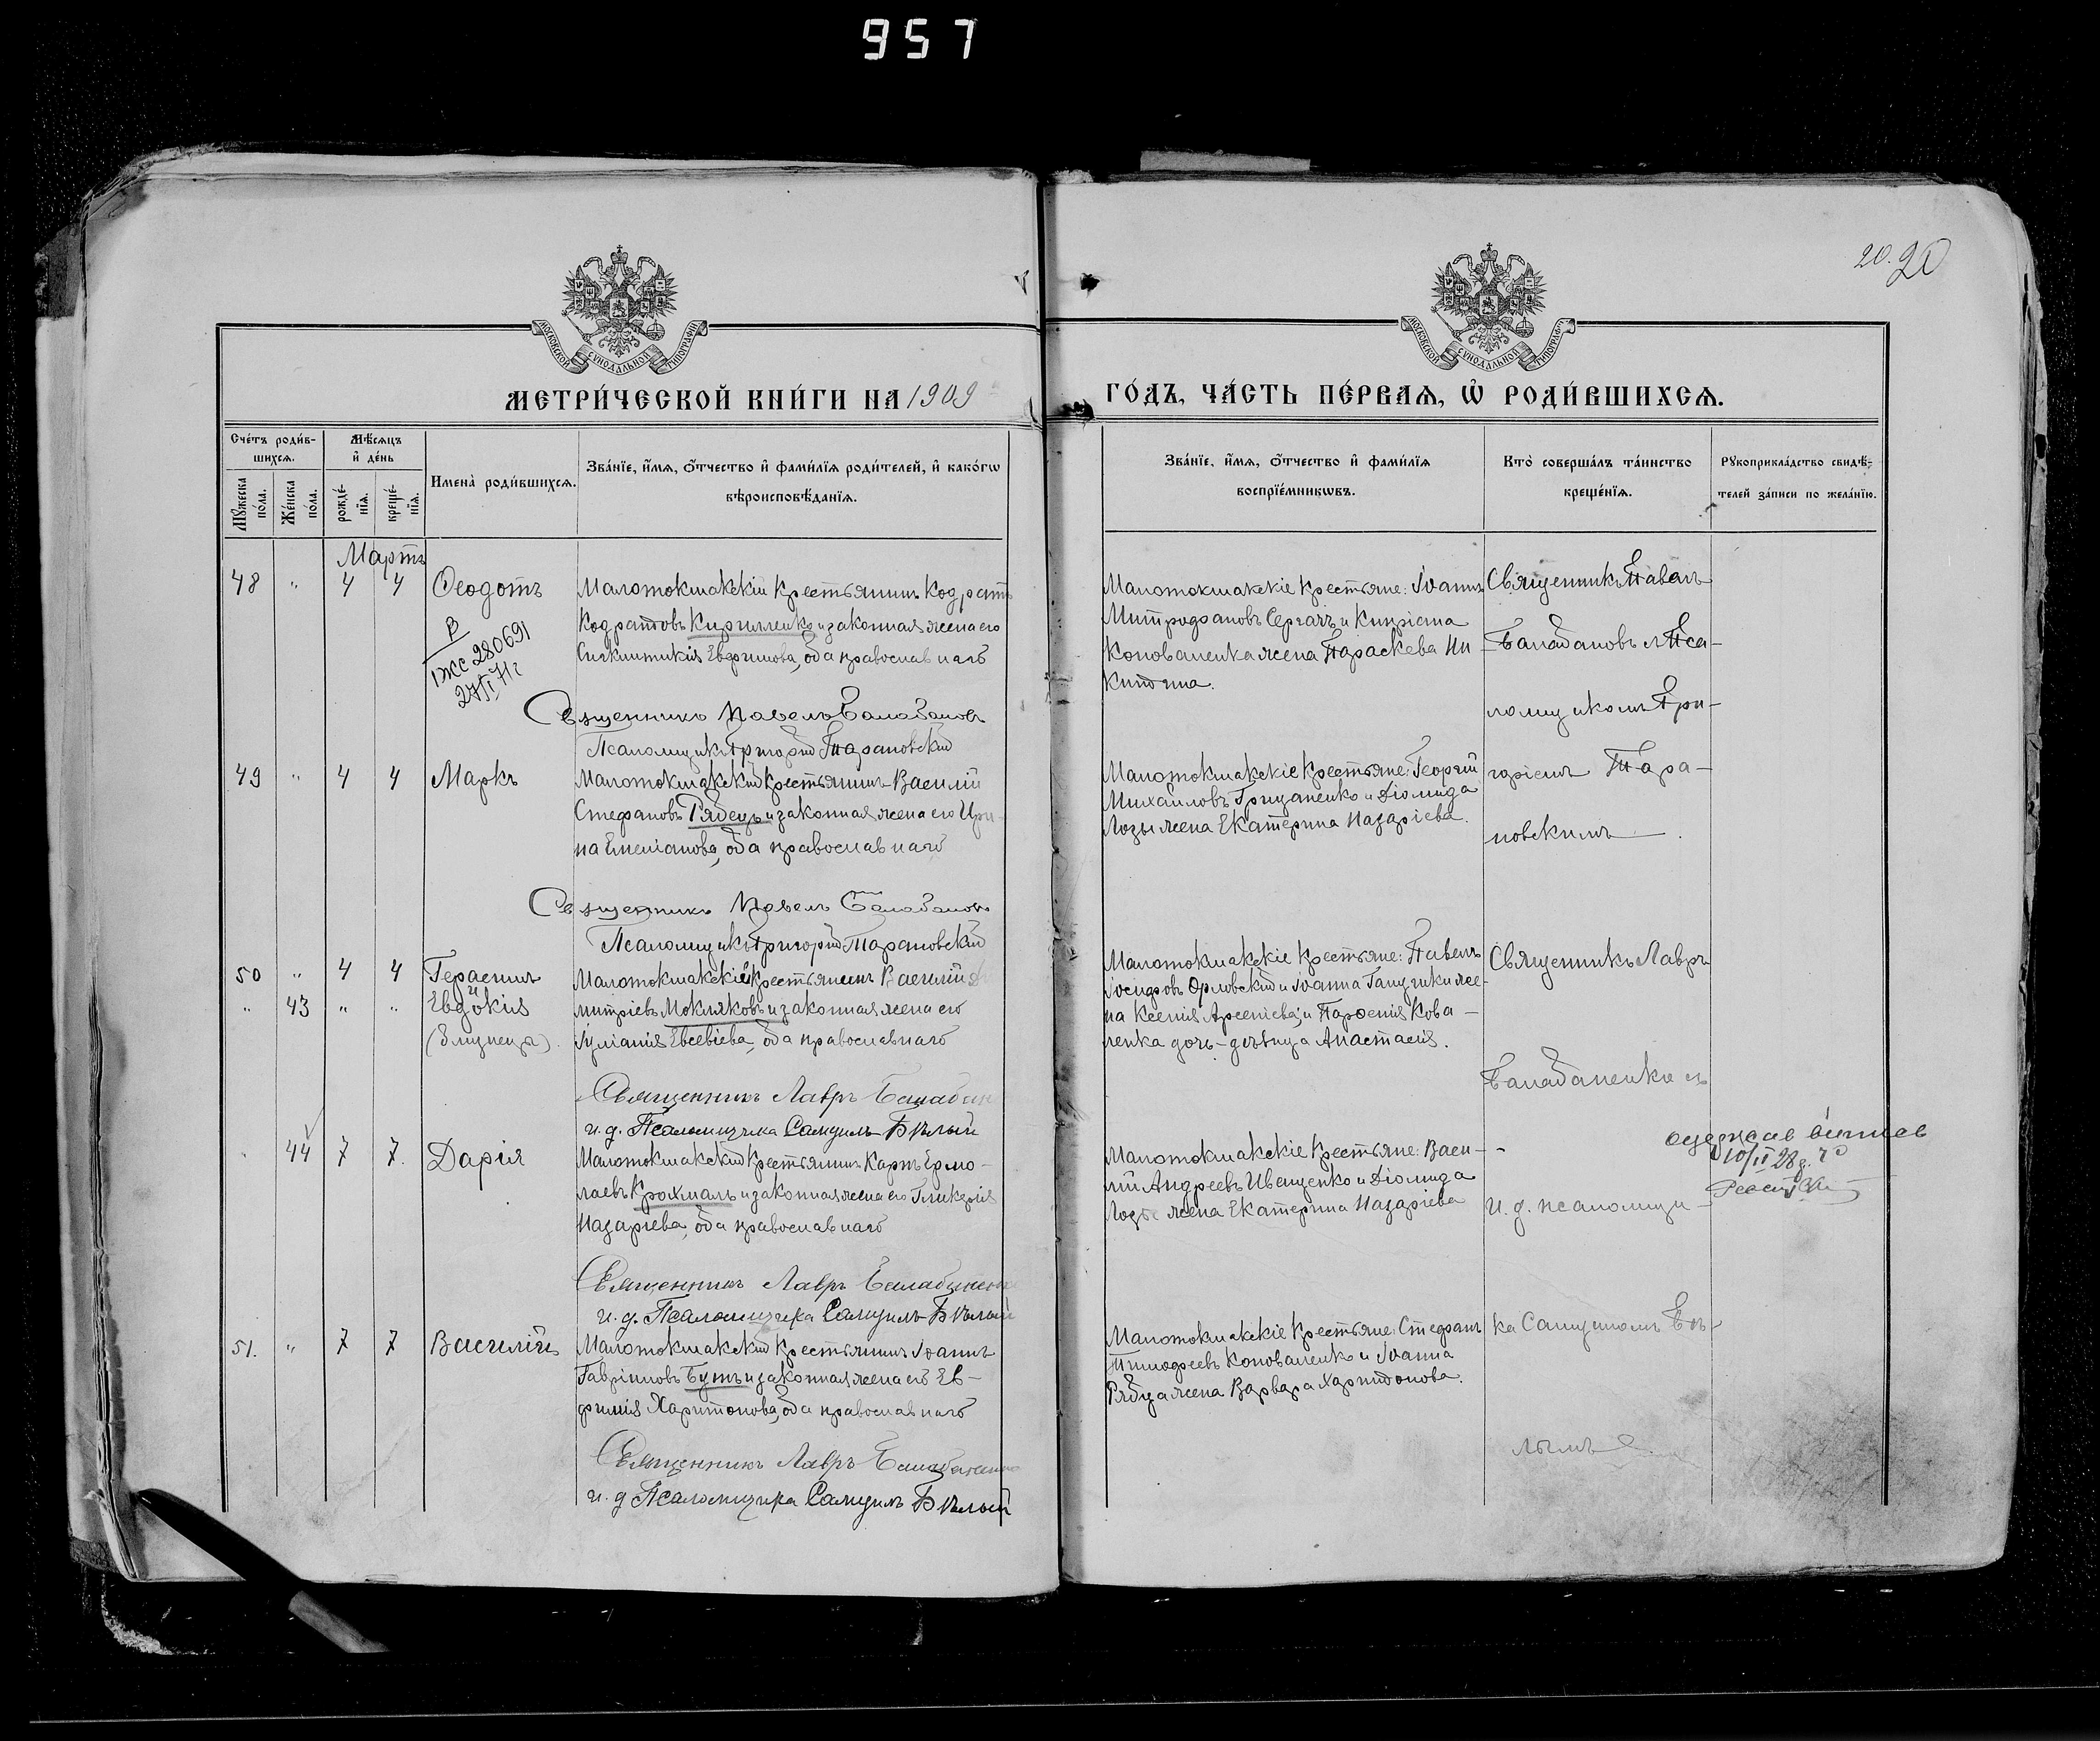 957
20. 20
МОСКОВСКОЙ СѴНОДАЛЬНОЙ ТИПОГРАФІИ
МОСКОВСКОЙ СѴНОДАЛЬНОЙ ТИПОГРАФІИ
МЕТРИ́ЧЕСКОЙ КНИ́ГИ НА 1909
ГО́ДЪ, ЧА́СТЬ ПЕ́РВАѦ, Ѡ҆ РОДИ́ВШИХСѦ.
Сче́тъ роди́в-
шихсѧ.
Мѣ́сѧцъ
и҆ де́нь
Мꙋ́жеска
по́ла.
Же́нска
по́ла.
рожде́-
нїѧ.
креще́-
нїѧ.
Имена̀ роди́вшихсѧ.
Зва́нїе, и҆́мѧ, ѻ҆́тчество и҆ фами́лїѧ роди́телей, и҆ како́гѡ
вѣроисповѣ́данїѧ.
Зва́нїе, и҆́мѧ, ѻ҆́тчество и҆ фами́лїѧ
воспрїе́мникѡвъ.
Кто̀ соверша́лъ та́инство
креще́нїѧ.
Рꙋкоприкла́дство свидѣ́-
телей за́писи по жела́нїю.
Мартъ
48 " 4 4 Ѳеодотъ
Малотокмакскій крестьянинъ Кодратъ
Кодратовъ Кириленко и законная жена его
Сигклитикія Евфимова, оба православнаго
В
1ЖС 280691
27/I 71г
Священникъ Павелъ Балабановъ
Псаломщикъ Григорій Тарановскій
Малотокмакскіе крестьяне: Іоаннъ
Митрофановъ Сергачъ и Кипріана
Коноваленка жена Параскева Ни-
китина.
Священникъ Павелъ
Балабановъ съ Пса-
ломщикомъ Гри-
горіемъ Тара-
новскимъ.
49 " 4 4 Маркъ
Малотокмакскій крестьянинъ Василій
Стефановъ Рябецъ и законная жена его Ири-
на Емеліанова, оба православнаго
Священникъ Павелъ Балабановъ
Псаломщикъ Григорій Тарановскій
Малотокмакскіе крестьяне: Георгій
Михайловъ Гриценко и Діомида
Лозы жена Екатерина Назаріева.
50 " 4 4 Герасимъ
" 43 " " и Евдокія
(близнецы).
Малотокмакскій крестьянинъ Василій Ди-
митріевъ Мокляковъ и законная жена его
Іуліанія Евсевіева, оба православнаго
Священникъ Лавръ Балабан
и. д. Псаломщика Самуилъ Бѣлый
Малотокмакскіе крестьяне: Павелъ
Іосифовъ Орловскій и Іоанна же-
на Ксенія Арсеніева; и Парѳенія Кова-
ленка дочь-дѣвица Анастасія.
Священникъ Лавръ
Балабаненко съ
и. д. псаломщи-
ка Самуиломъ Бѣ-
лымъ.
44 7 7. Дарія
Малотокмакскій крестьянинъ Карпъ Ермо-
лаевъ Крохмаль и законная жена его Гликерія
Назаріева, оба православнаго
Священникъ Лавръ Балабаненко
и. д. Псаломщика Самуилъ Бѣлый
Малотокмакскіе крестьяне: Васи-
лій Андреевъ Иващенко и Діомида
Лозы жена Екатерина Назаріева
одержав витяг
10/II 28 р.
51. " 7 7 Василій
Малотокмакскій крестьянинъ Іоаннъ
Гавріиловъ Бутъ и законная жена его Ев-
фимія Харитонова, оба православнаго
Священникъ Лавръ Балабаненко
и. д. Псаломщика Самуилъ Бѣлый
Малотокмакскіе крестьяне: Стефанъ
Тимофеевъ Коноваленко и Іоанна
Рябца жена Варвара Харитонова.